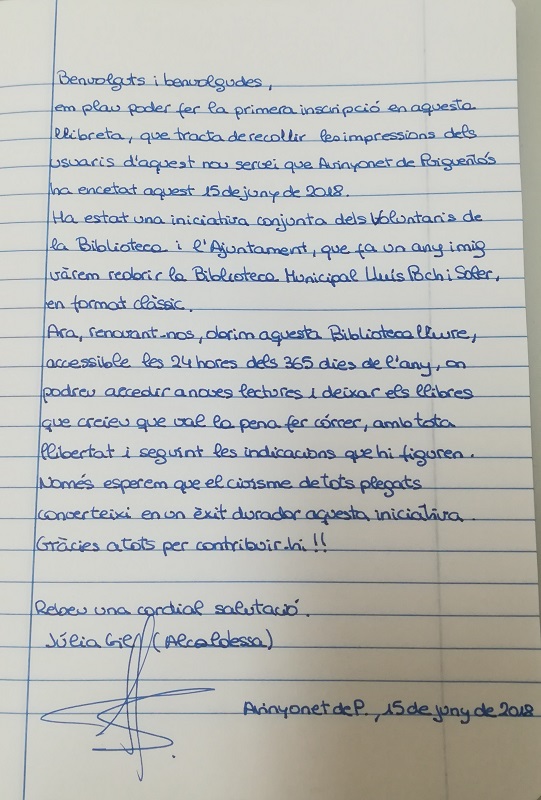 Benvolguts i benvolgudes,
em plau poder fer la primera inscripció en aquesta
llibreta, que tracta de recollir les impressions dels
usuaris d'aquest nou servei que Avinyonet de Puigventós
ha encetat aquest 15 de juny de 2018.
Ha estat una iniciativa conjunta dels Voluntaris de
la Biblioteca i l'Ajuntament, que fa un any i mig
vàrem reobrir la Biblioteca Municipal Lluís Boch i Soler,
en format clàssic.
Ara, renovant-nos, obrim aquesta Biblioteca lliure,
accessible les 24 hores dels 365 dies de l'any, on
podreu accedir a noves lectures i deixar els llibres
que creieu que val la pena fer córrer, amb tota
llibertat i seguint les indicacions que hi figuren.
Només esperem que el civisme de tots plegats
converteixi en un èxit durador aquesta iniciativa.
Gràcies a tots per contribuir-hi!!
Rebeu una cordial salutació.
Júlia Gil (Alcaldessa)
Avinyonet de P., 15 de juny de 2018